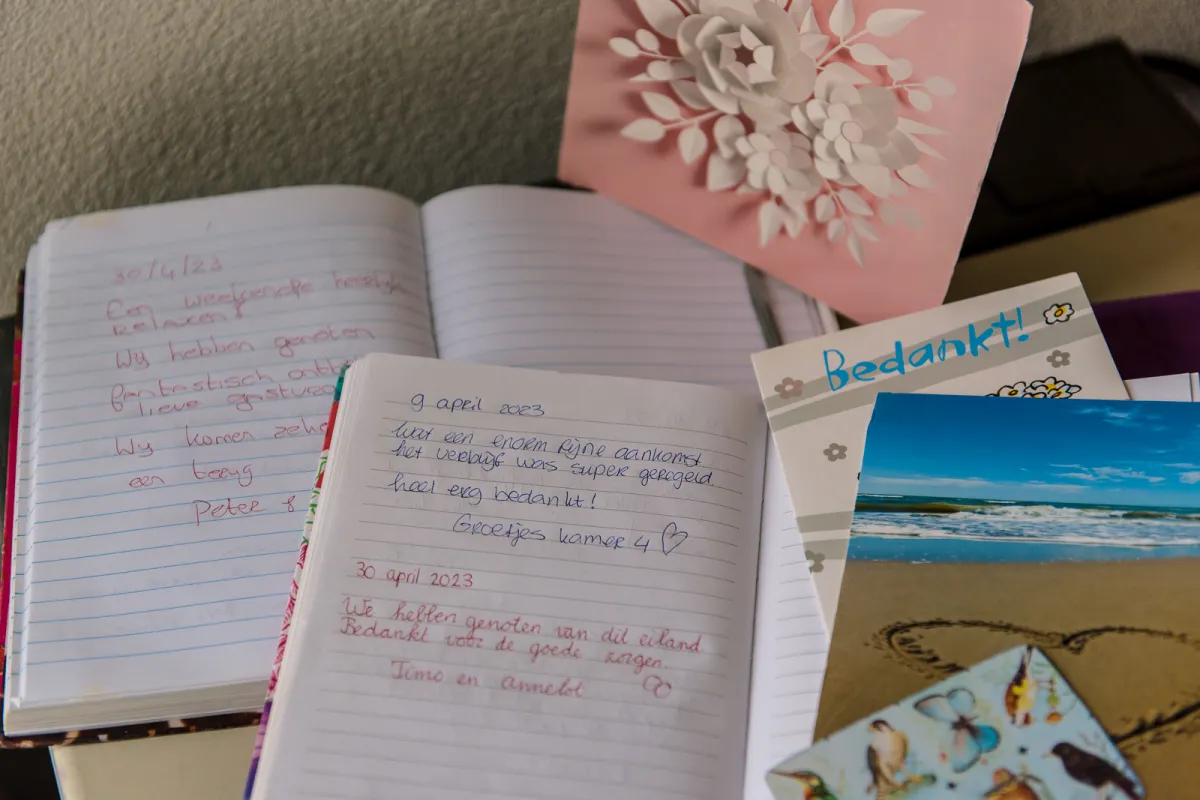 30/4/23
Een weekendje heerlijk
relaxen!
Wij hebben genoten
fantastisch
lieve
Wij komen
een terug
Peter &
9 april 2023
Wat een enorm fijne aankomst
het verblijf was super geregeld
heel erg bedankt!
Groetjes kamer 4
30 april 2023
We hebben genoten van dit eiland
Bedankt voor de goede zorgen.
Timo en annelot
Bedankt!